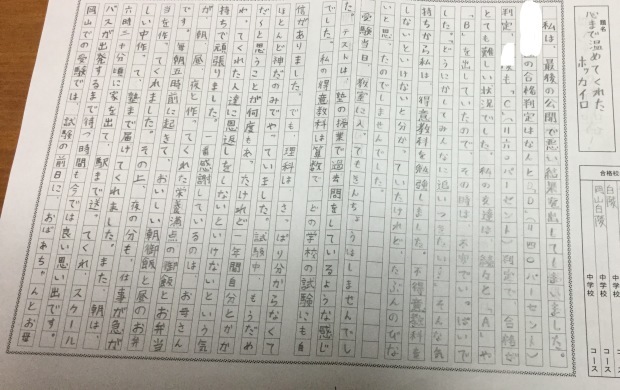 題名
心まで温めてくれた
ホッカイロ
合格校
白陵
中学校
コース
岡山白陵
中学校
コース
私は、最後の公開で悪い結果を出してしまいました。
の合格判定はなんと「D」(四〇パーセント)
判定 も「C」(六〇パーセント)判定で、合格
とても難しい状況でした。私の友達は、続々と「A」や
「B」を出していたので、その時は、不安でいっぱいで
した。「どうにかしてみんなに追いつきたい。」そんな
持ちから私は、得意教科を勉強しました。不得意教科を
ないといけないと分かっていたけれど、
受験当日、教室に入ってもきんちょうはしませんでし
た。テストは、塾の授業で過去問をしているような感じ
でした。私の得意教科は算数で、どの学校の試験にも自
信がありました。でも、理科は、さっぱり分からなくて
ほとんど神だのみでやっていました。試験中、もうだめ
だ〜と思うことが何度もあったけれど、一年間自分とかか
わってくれた人達に恩返しをしないといけないという気
持ちで頑張りました。一番感謝しているのは、お母さん
が、朝、昼、夜と作ってくれた栄養満点の御飯とお弁当
です。毎朝五時前に起きて、おいしい朝御飯と昼のお弁
当を作ってくれました。その上、夜の分も、仕事が急が
しい中作って、塾まで届けてくれました。また、朝は、
六時二十分頃に家を出て、駅まで送ってくれ、スクール
バスが出発するまで待つ時間も今では良い思い出です。
岡山での受験では、試験の前日に、おばあちゃんとお母